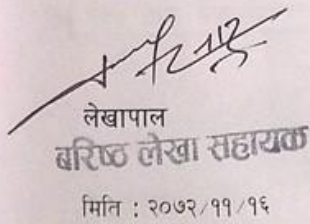 लेखापाल
बरिष्ठ लेखा सहायक
मिति : २०७२/११/१६